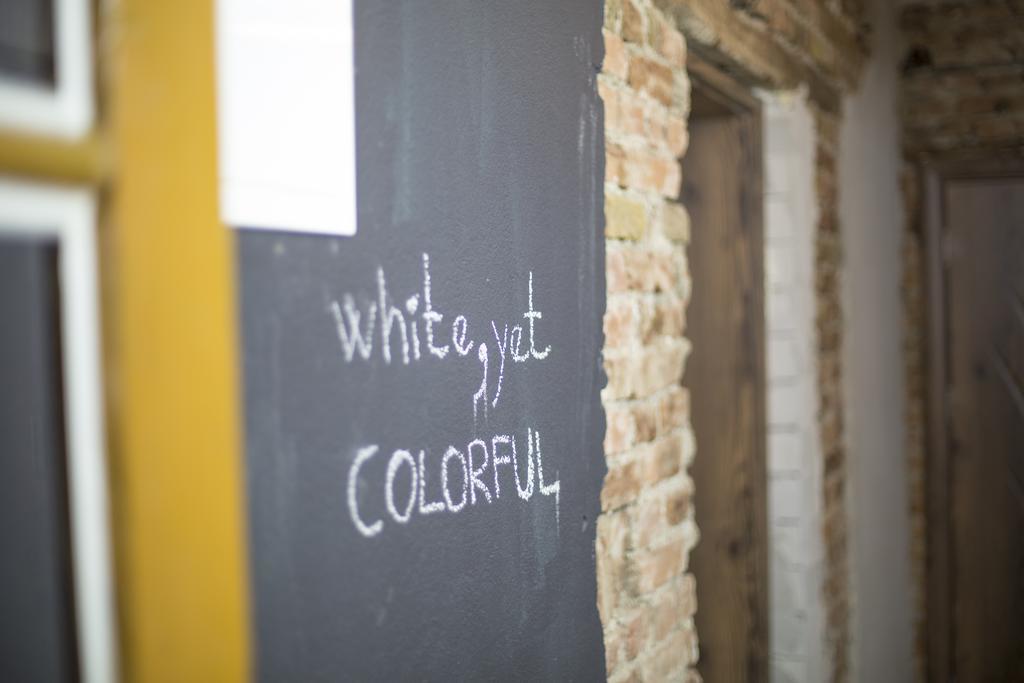 white, yet
COLORFUL